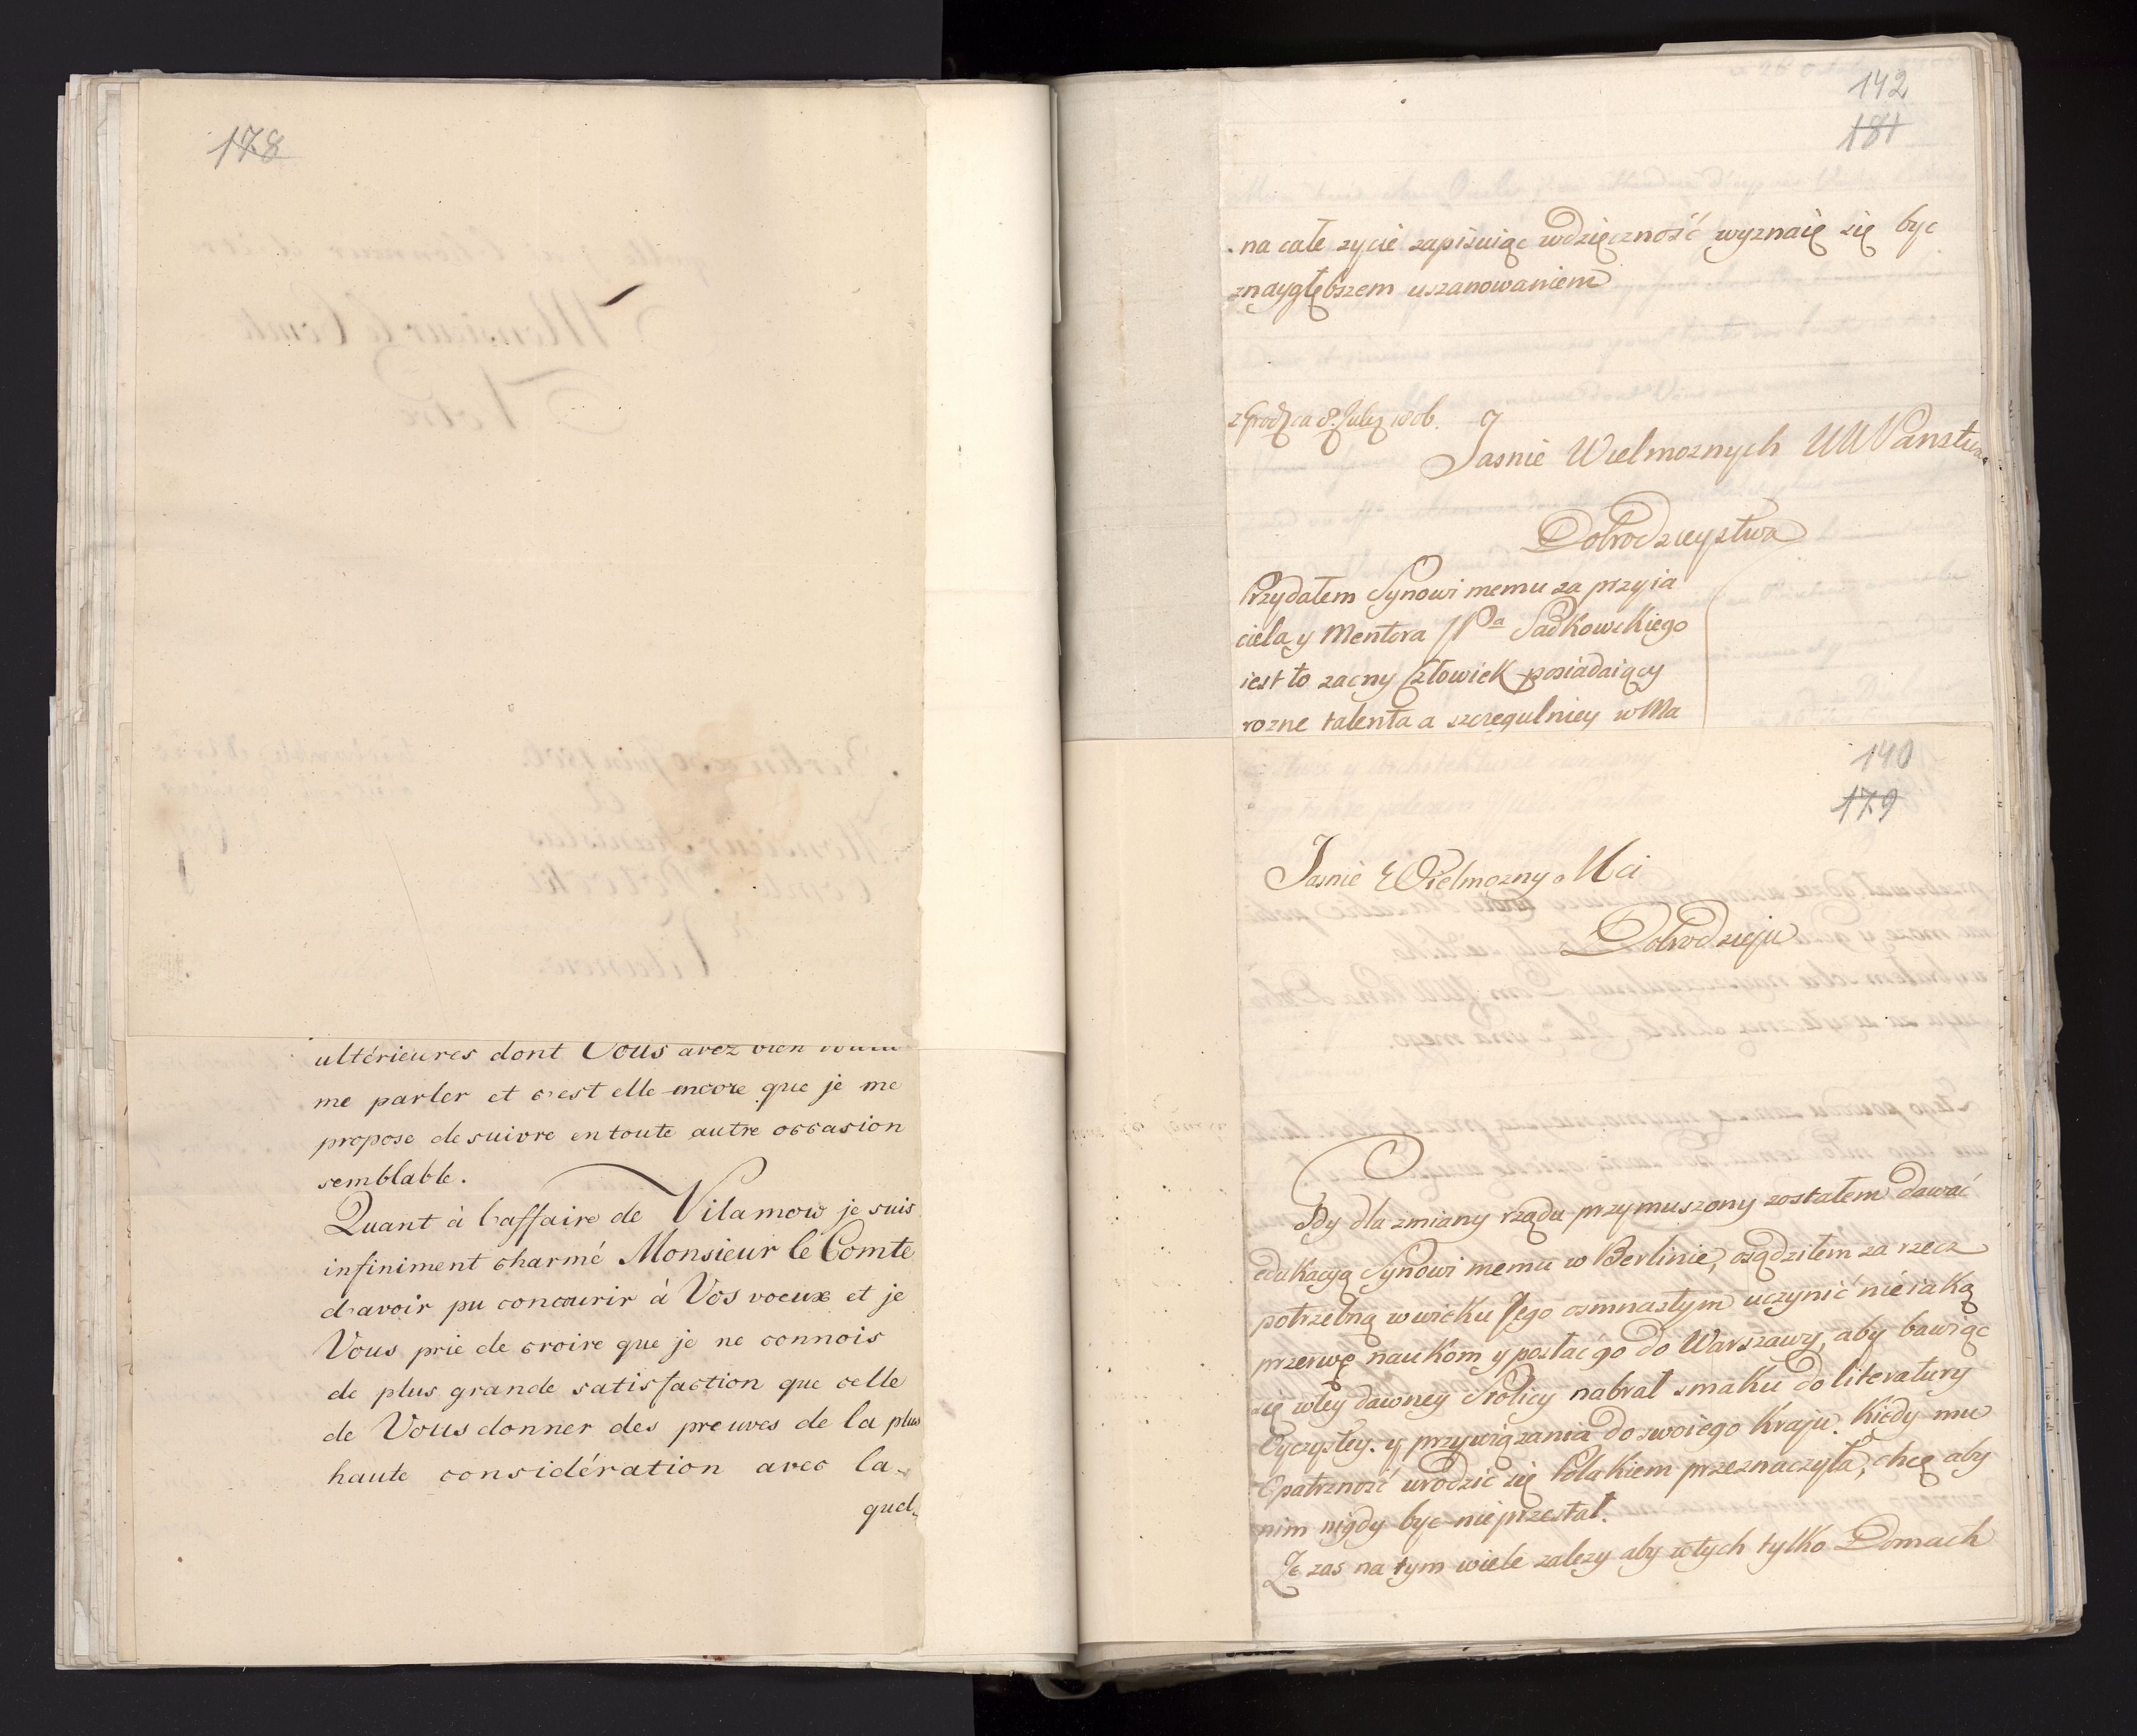 178
ultérieures dont Vous avez bien voulu
me parler et c'est elle encore que je me
propose de suivre en toute autre occasion
semblable.
Quant à l'affaire de Vilamow je suis
infiniment charmé Monsieur le Comte
d'avoir pu concourir à Vos voeux et je
Vous prie de croire que je ne connois
de plus grande satisfaction que celle
de Vous donner des preuves de la plus
haute considération avec la-
quel-
142
181
na całe zycie zapisuiąc wdzięczność wyznaię się byc
znaygłębszem uszanowaniem
8. July 1806.
Jasnie Wielmoznych WW Panstwa
Dobrodzieystwa
Przydałem Synowi memu za przyia
ciela y Mentora JPa Sadkowskiego
iest to zacny Człowiek posiadaiący
rozne talenta a szczegulniey w Ma
140
179
Jasnie Wielmozny Mci
Dobrodzieju
Gdy dla zmiany rządu przymuszony zostałem dawać
edukacyą Synowi memu w Berlinie, osądziłem za rzecz
potrzebną w wieku Jego osmnastym uczynić nieiaką
przerwę naukom y posłać go do Warszawy, aby bawiąc
się w tey dawney Stolicy nabrał smaku do literatury
Oyczystey. y przywiązania do swoiego Kraju. Kiedy mu
Opatrzność urodzic się Polakiem przeznaczyła, chcę aby
nim nigdy byc nie przestał.
Ze zas na tym wiele zalezy aby w tych tylko Domach